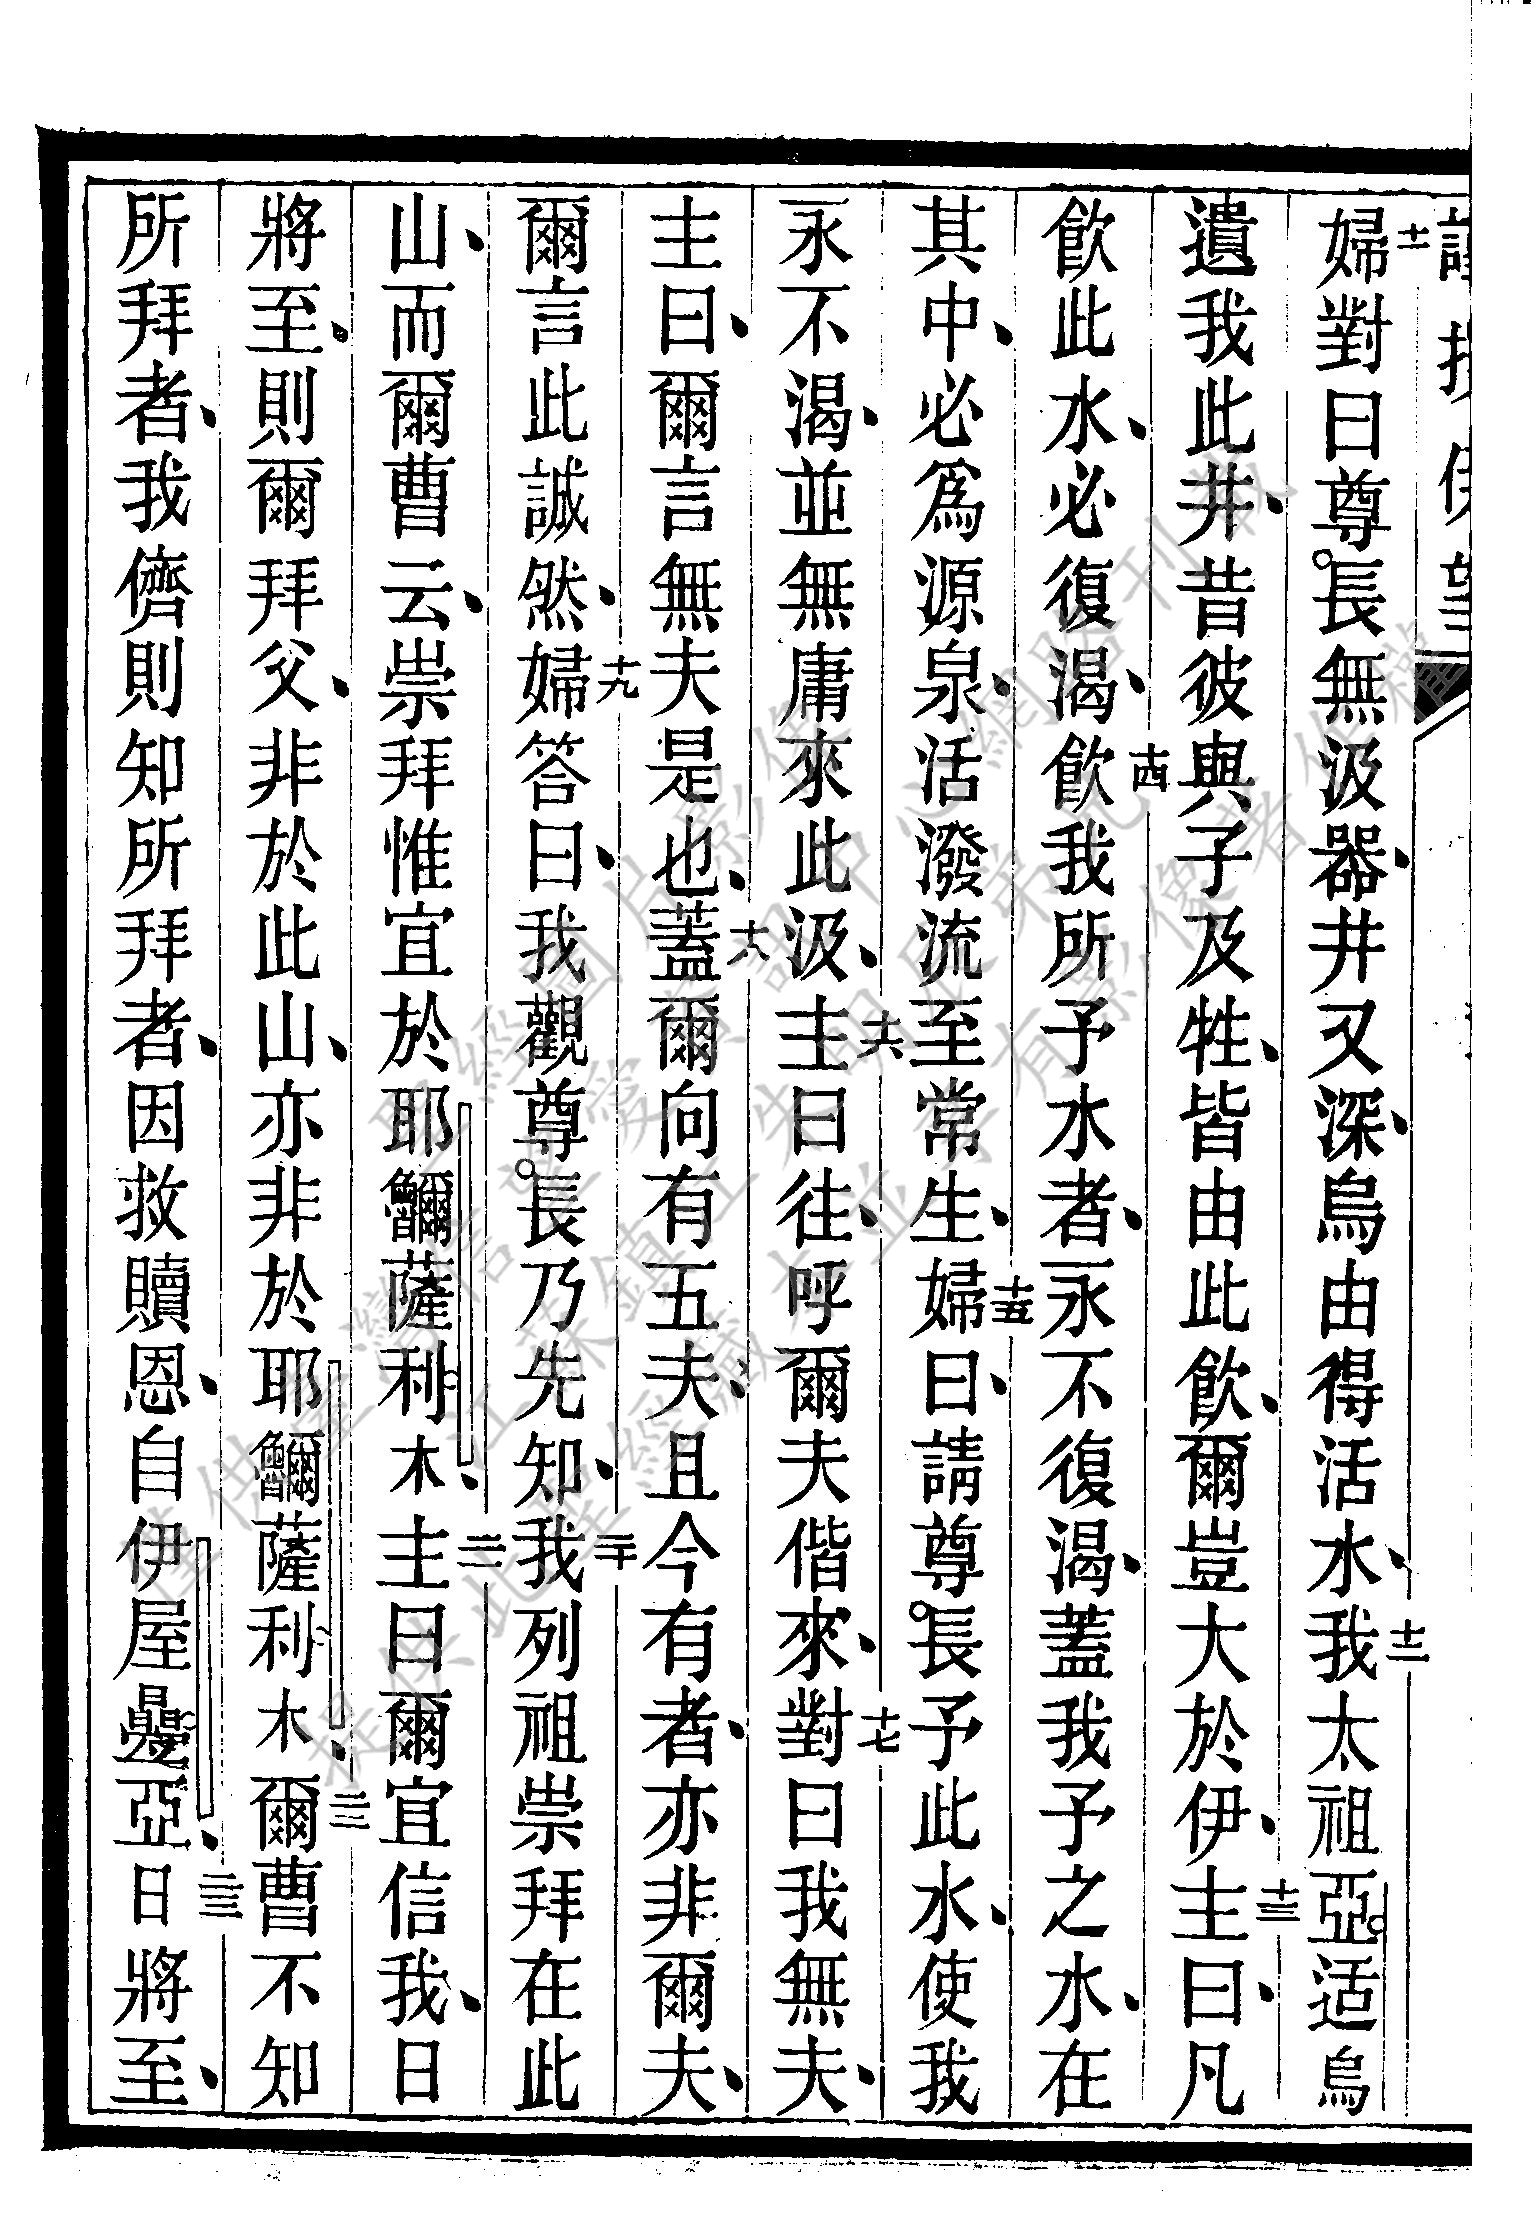 十一婦對曰尊長無汲器、井又深、烏由得活水、十二我太祖亞适烏
遺我此井、昔彼與子及牲、皆由此飲、爾豈大於伊、十三主曰、凡
飲此水、必復渴、十四飲我所予水者、永不復渴、蓋我予之水、在
其中、必爲源泉、活潑流至常生、十五婦曰、請尊長予此水、使我
永不渴、並無庸來此汲、十六主曰往、呼爾夫偕來、十七對曰我無夫、
主曰、爾言無夫是也、十八蓋爾向有五夫、且今有者、亦非爾夫、
爾言此誠然、十九婦答曰、我觀尊長乃先知、二十我列祖崇拜在此
山、而爾曹云、崇拜惟宜於耶薩利木、二一主曰爾宜信我、日
將至、則爾拜父、非於此山、亦非於耶薩利木、二二爾曹不知
所拜者、我儕則知所拜者、因救贖恩、自伊屋亞、二三日將至、
聖經圖片影像
僅供臺灣信望愛資訊中心網路刊載
提供此聖經藏本並享有影像著作權